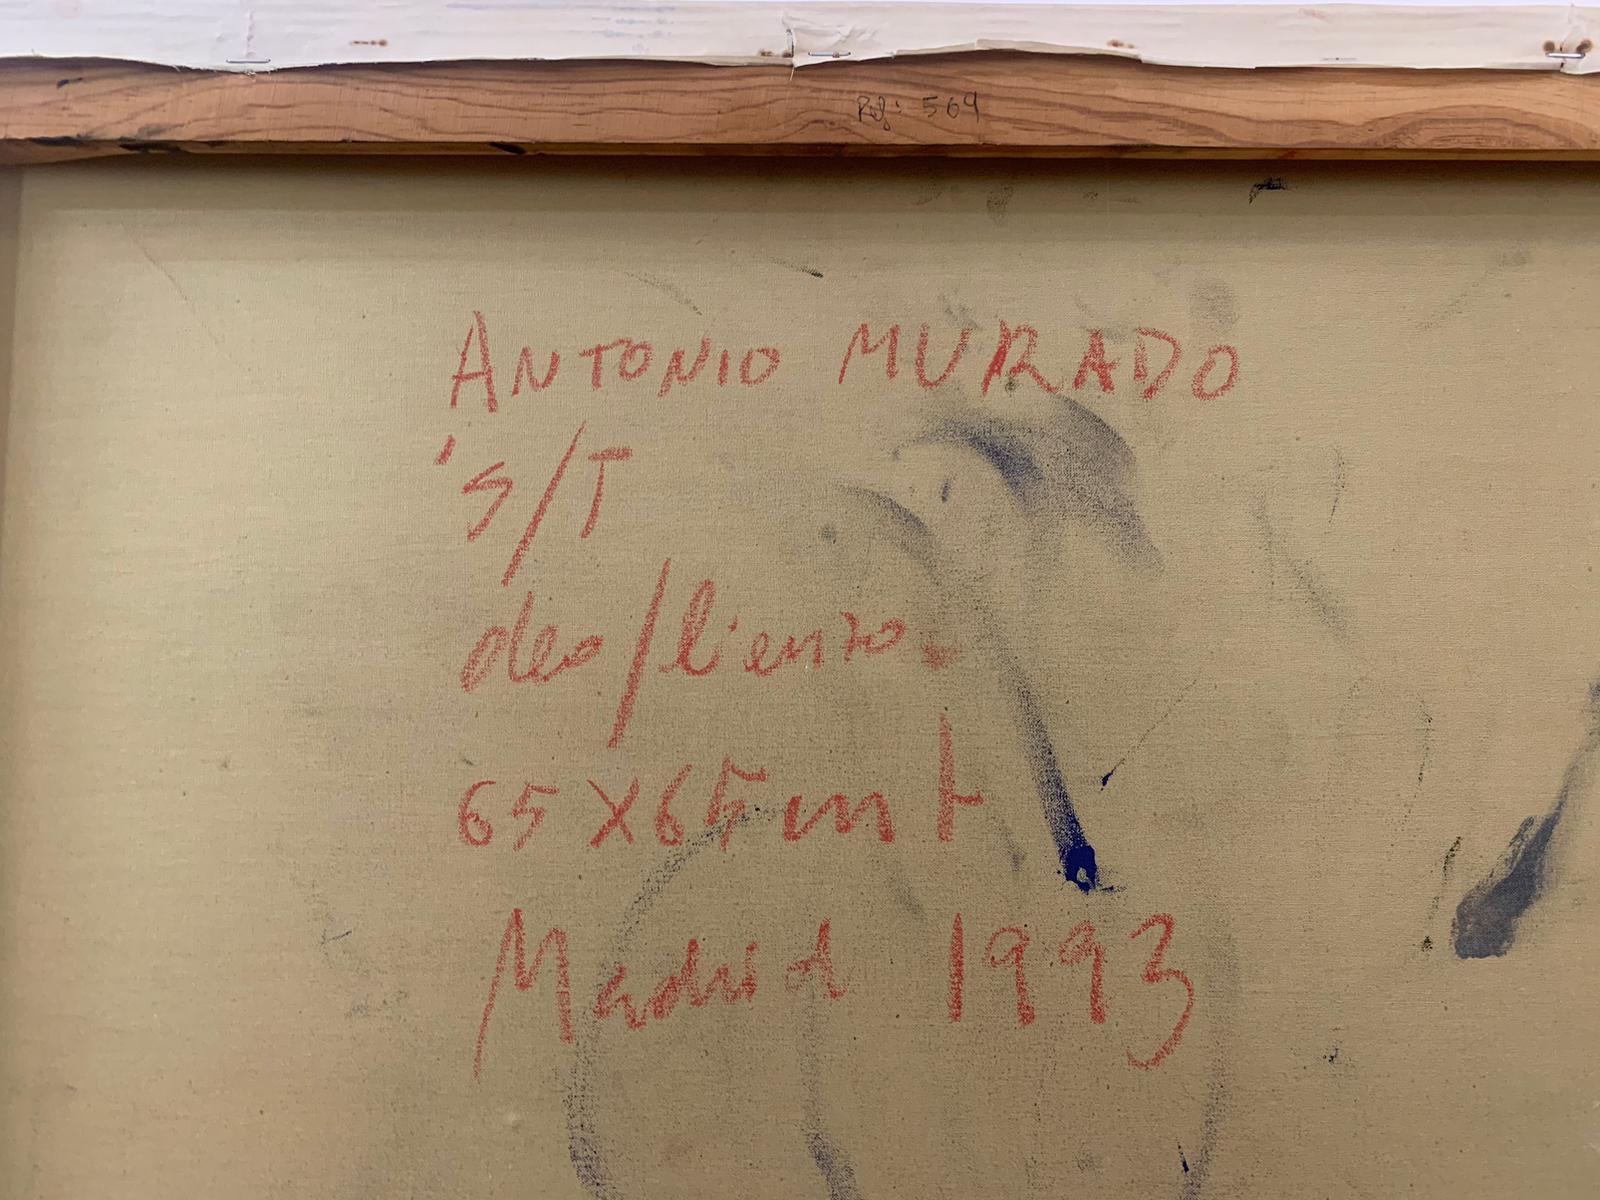 Ref: 569
ANTONIO MURADO
'S/T
oleo/lienzo.
65X65 cm
Madrid 1993